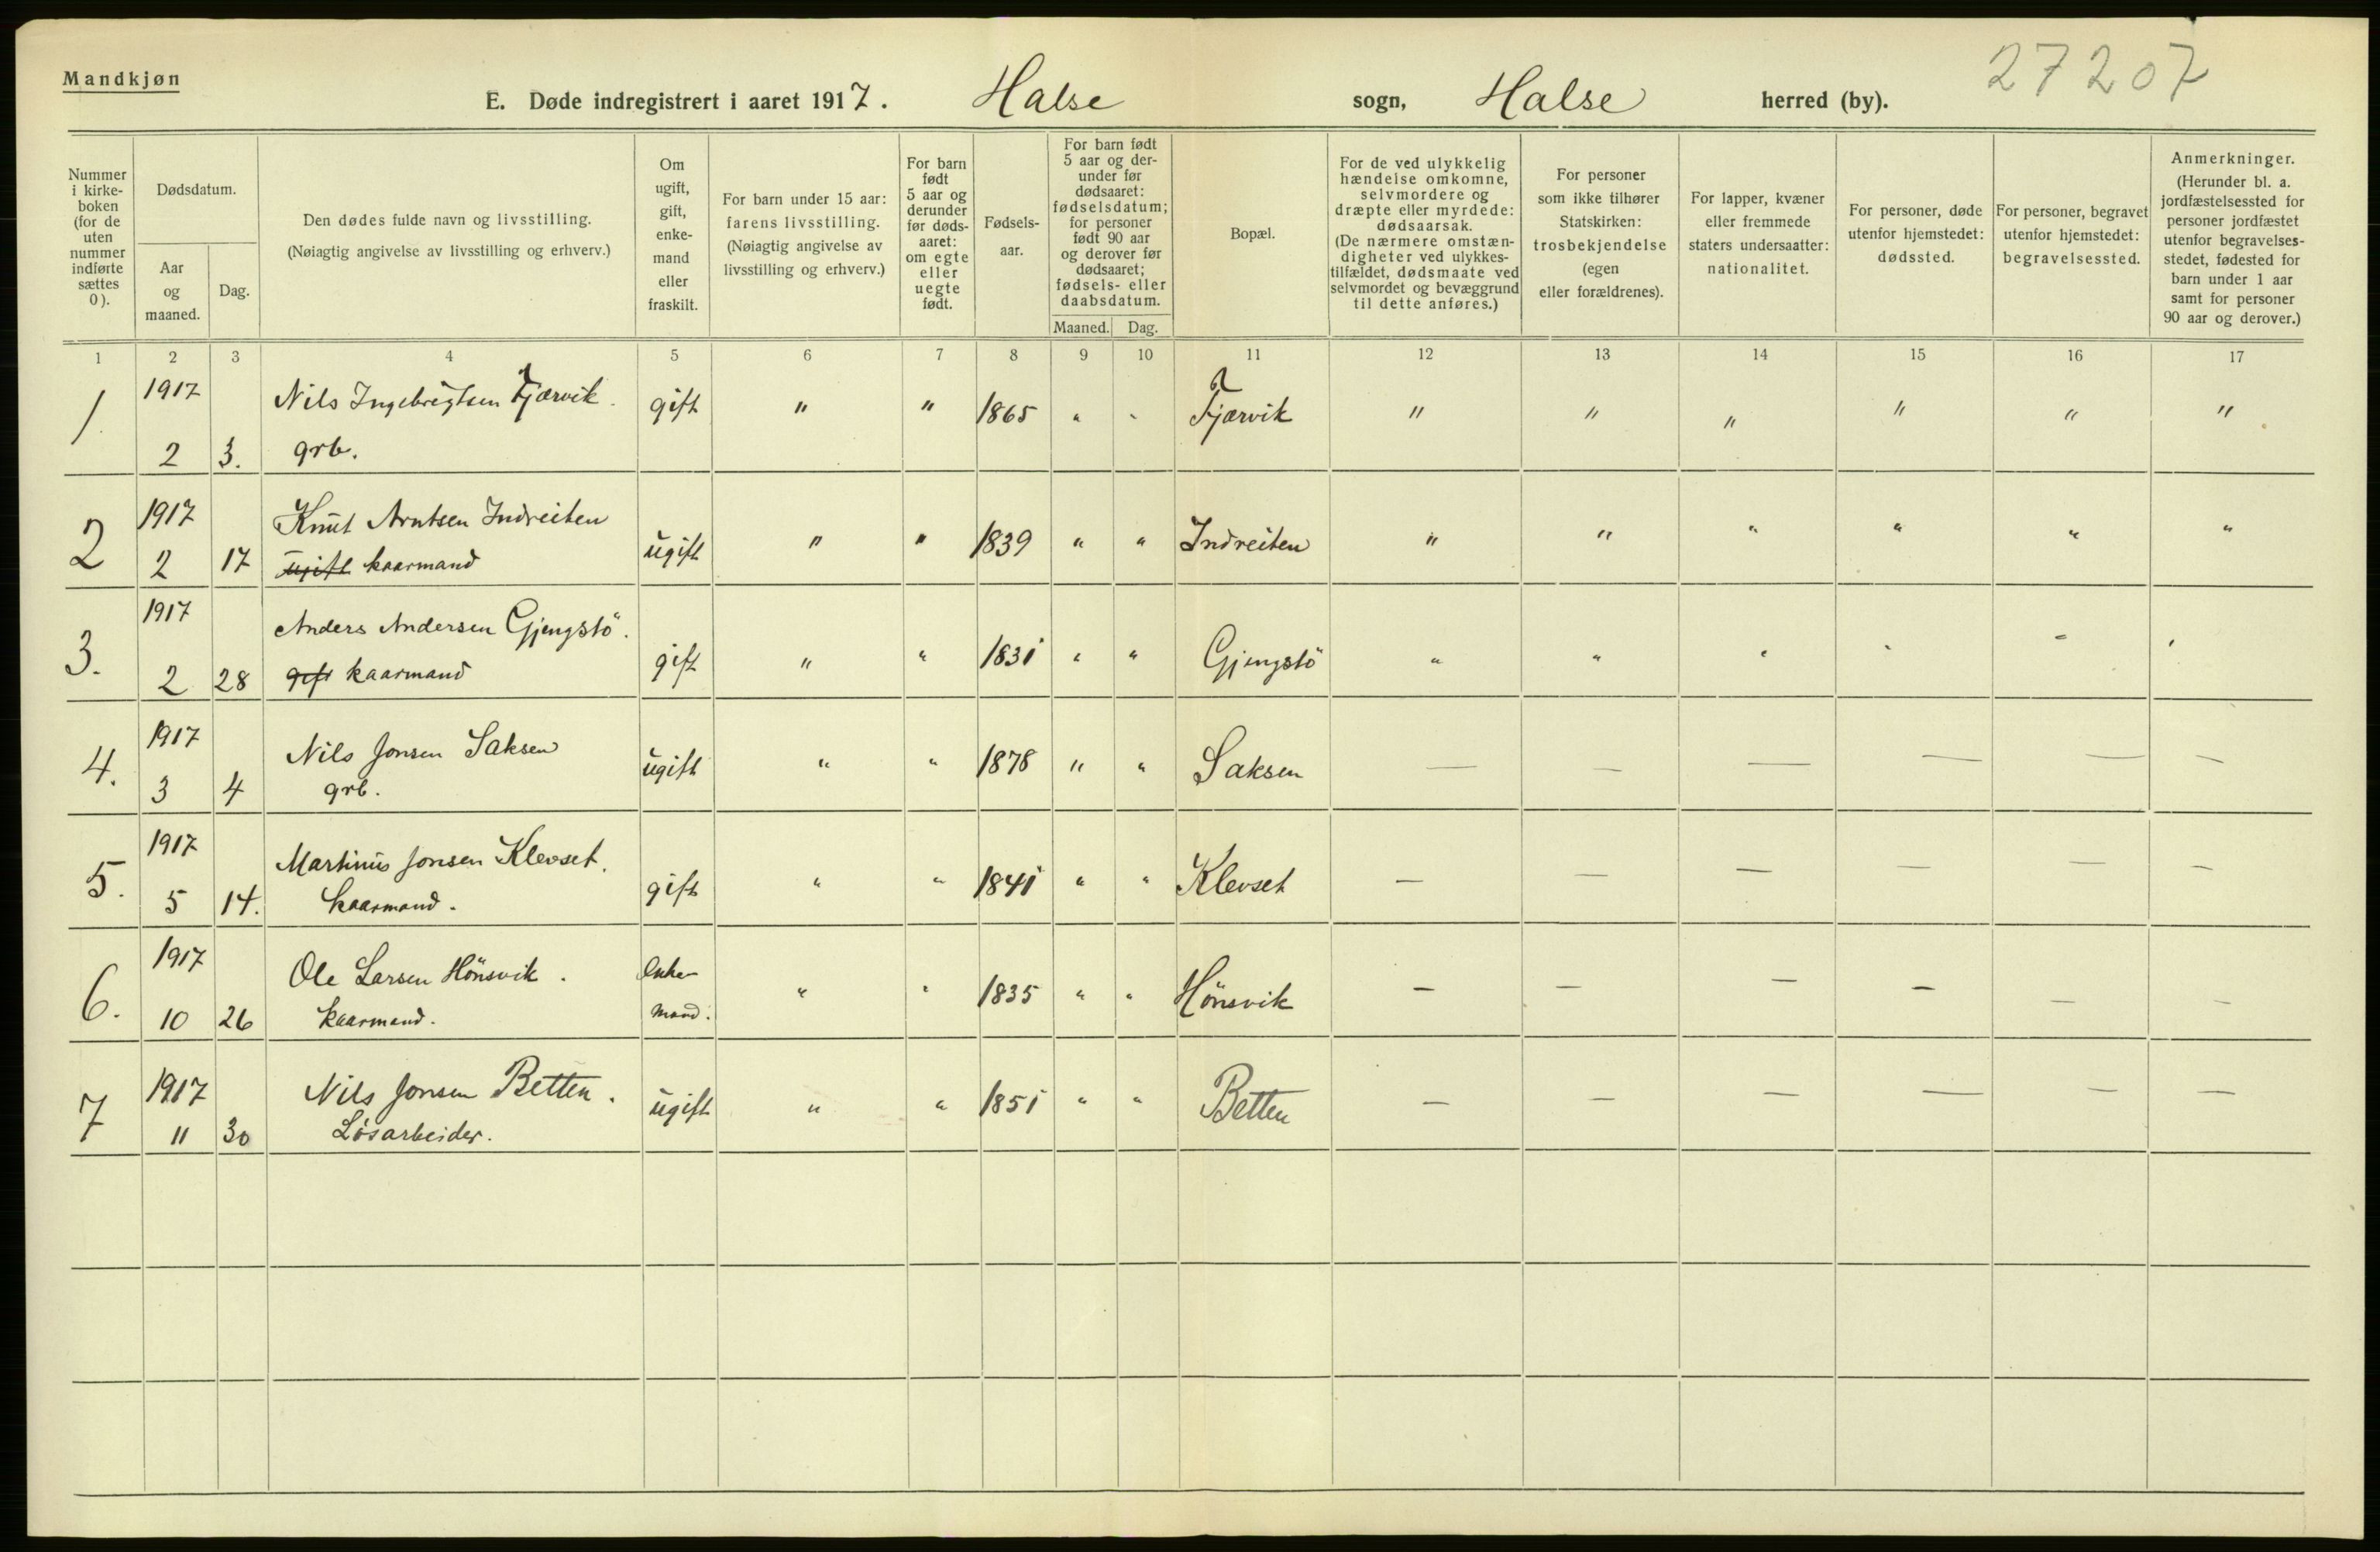 Mandkjøn
27207
E. Døde indregistrert i aaret 1917. Halse sogn, Halse herred (by).
Nummer
i kirke-
boken
(for de
uten
nummer
indførte
sættes
0).
Dødsdatum.
Aar
og
maaned.
Dag.
Den dødes fulde navn og livsstilling.
(Nøiagtig angivelse av livsstilling og erhverv.)
Om
ugift,
gift,
enke-
mand
eller
fraskilt.
For barn under 15 aar:
farens livsstilling.
(Nøiagtig angivelse av
livsstilling og erhverv.)
For barn
født
5 aar og
derunder
før døds-
aaret:
om egte
eller
uegte
født.
Fødsels-
aar.
For barn født
5 aar og der-
under før
dødsaaret:
fødselsdatum;
for personer
født 90 aar
og derover før
dødsaaret;
fødsels- eller
daabsdatum.
Maaned. Dag.
Bopæl.
For de ved ulykkelig
hændelse omkomne,
selvmordere og
dræpte eller myrdede:
dødsaarsak.
(De nærmere omstæn-
digheter ved ulykkes-
tilfældet, dødsmaate ved
selvmordet og bevæggrund
til dette anføres.)
For personer
som ikke tilhører
Statskirken:
trosbekjendelse
(egen
eller forældrenes).
For lapper, kvæner
eller fremmede
staters undersaatter:
nationalitet.
For personer, døde
utenfor hjemstedet:
dødssted.
For personer, begravet
utenfor hjemstedet:
begravelsessted.
Anmerkninger.
(Herunder bl. a.
jordfæstelsessted for
personer jordfæstet
utenfor begravelses-
stedet, fødested for
barn under 1 aar
samt for personer
90 aar og derover.)
1 2 3 4 5 6 7 8 9 10 11 12 13 14 15 16 17
1. 1917 Nils Ingebrigtsen Fjærvik. gift " " 1865 " " Fjærvik " " " " " "
2 3. grb.
2 1917 Knut Arntsen Indreiten ugift " " 1839 " " Indreiten " " " " " "
2 17 ugift kaarmand
3. 1917 Anders Andersen Gjengstö. gift " " 1831 " " Gjengstö " " " " " "
2 28 gift kaarmand
4. 1917 Nils Jonsen Saksen ugift " " 1878 " " Saksen — — — — — —
3 4 grb.
5. 1917 Martinus Jonsen Klevset. gift " " 1841 " " Klevset — — — — — —
5 14. kaarmand.
6. 1917 Ole Larsen Hönsvik. Enke- " " 1835 " " Hönsvik — — — — — —
10 26 kaarmand. mand.
7 1917 Nils Jonsen Betten. ugift " " 1851 " " Betten — — — — — —
11 30 Lösarbeider.